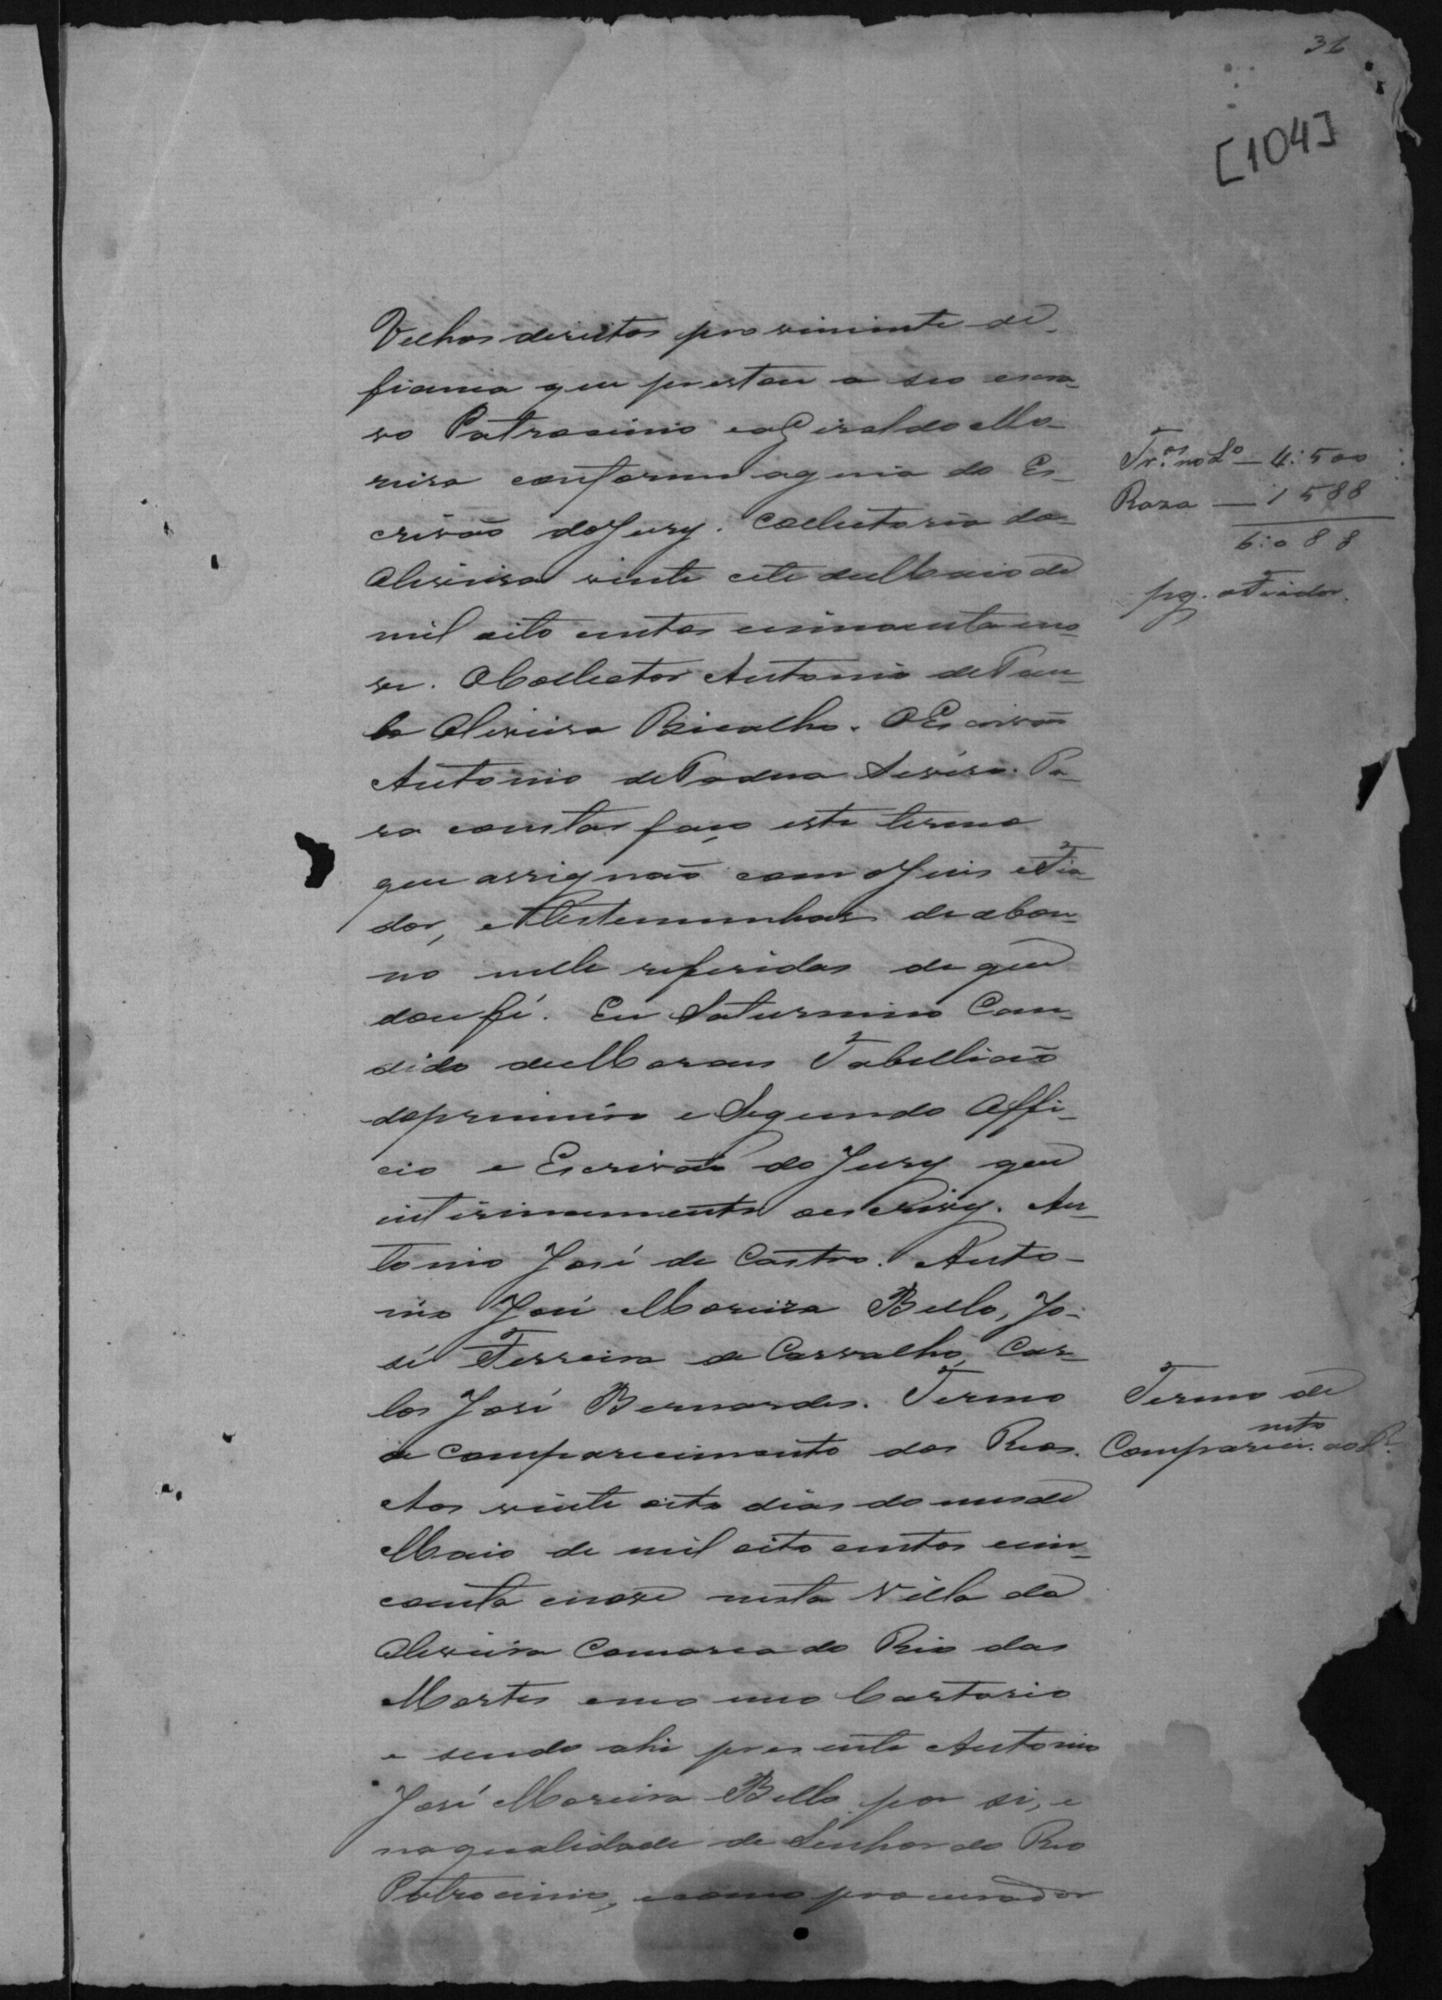 31
[104]
Velhos direitos proviniente de
fiança que prestou a seo escra-
vo Patrocinio e a Giraldo Mo-
reira conforme a guia do Es-
crivão do Jury. Collectoria da
Oliveira vinte oito de Maio de
mil oito centos cincoenta eno-
ve. O Collector Antonio de Pau-
la Oliveira Bicalho. O Escrivão
Antonio de Padua Severo. Pa-
ra constar faço este termo
que assignão com o Juis e Fia-
dor, e testemunhas de abou-
no nelle referidas de que
dou fé. Eu Saturnino Can-
dido de Moraes Tabellião
do primeiro e Segundo Offi-
cio e Escrivão do Jury que
interinamente escrivy. An-
tonio José de Castro. Anto-
nio José Moreira Bello, Jo-
sé Ferreira de Carvalho, Car-
los José Bernardes. Termo
de comparecimento dos Reos.
Aos vinte oito dias do mes de
Maio de mil oito centos cin-
coenta enove nesta Villa da
Oliveira Comarca do Rio das
Mortes em o meo Cartorio
e sendo ahi presente Antonio
José Moreira Bello por si, e
na qualidade de Senhor do Reo
Patrocinio, e como procurador
Tr.os no L.o — 4:500
Raza — 1588
6:088
pg. o Fiador.
Termo de
Comparecim.nto